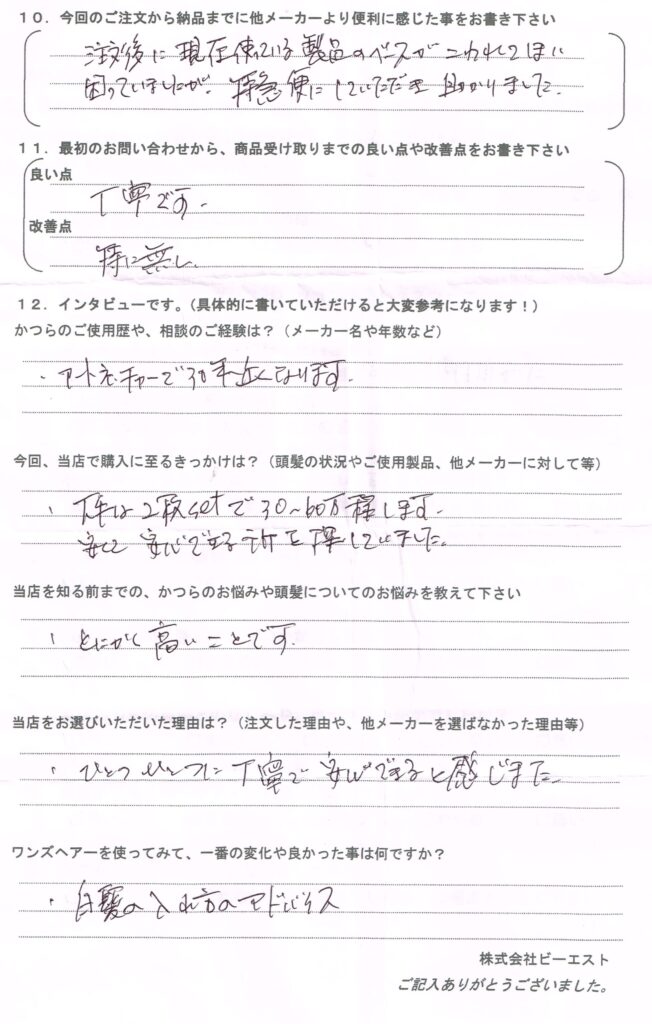 １０．今回のご注文から納品までに他メーカーより便利に感じた事をお書き下さい
注文後に現在使っている製品のベースがこわれてしまい
困っていましたが、特急便にしていただき助かりました。
１１．最初のお問い合わせから、商品受け取りまでの良い点や改善点をお書き下さい
良い点
丁寧です。
改善点
特に無し
１２．インタビューです。（具体的に書いていただけると大変参考になります！）
かつらのご使用歴や、相談のご経験は？（メーカー名や年数など）
・アートネーチャーで30年近くなります。
今回、当店で購入に至るきっかけは？（頭髪の状況やご使用製品、他メーカーに対して等）
・2枚setで30～60万程します。
安くて安心できる所を探していました。
当店を知る前までの、かつらのお悩みや頭髪についてのお悩みを教えて下さい
・とにかく高いことです。
当店をお選びいただいた理由は？（注文した理由や、他メーカーを選ばなかった理由等）
・ひとつひとつに丁寧で安心できると感じました。
ワンズヘアーを使ってみて、一番の変化や良かった事は何ですか？
・白髪の入れ方のアドバイス
株式会社ビーエスト
ご記入ありがとうございました。